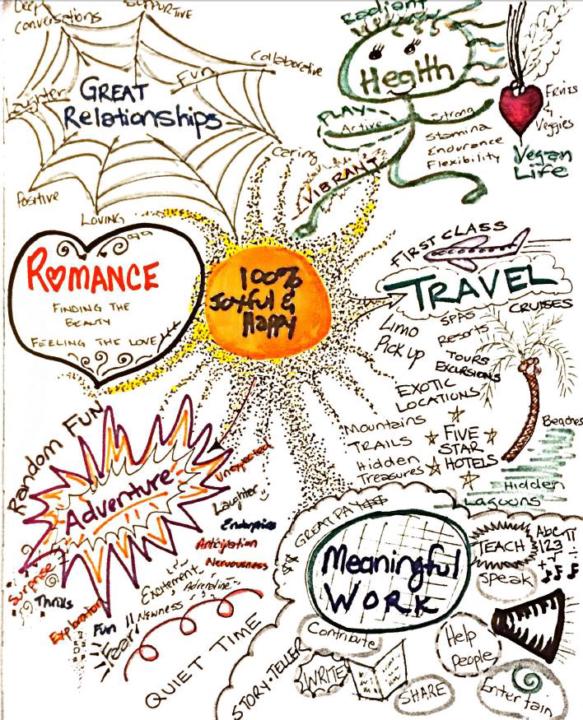 Deep
Conversations
SUPPORTIVE
Collaborative
Fun
Laughter
GREAT
Relationships
Caring
Positive
LOVING
Radiant
Health
PLAY
Active
Strong
Stamina
Endurance
Flexibility
VIBRANT
FRUITS
&
Veggies
Vegan
Life
ROMANCE
FINDING THE
BEAUTY
FEELING THE LOVE
100%
Joyful &
Happy
FIRST CLASS
TRAVEL
CRUISES
Limo
Pick up
SPAS
Resorts
TOURS
EXCURSIONS
EXOTIC
LOCATIONS
Mountains
TRAILS
Hidden
Treasures
FIVE
STAR
HOTELS
Beaches
Hidden
Lagoons
Random FUN
Adventure
Unexpected
Laughter
Endorphins
Anticipation
Nervousness
Excitement
Adrenaline
Newness
Surprise
Thrills
Exploration
Fun
Fear
QUIET TIME
GREAT PAY $$$
Meaningful
WORK
TEACH
Speak
Abc π
123 ÷
Contribute
Help
People
STORY·TELLER
WRITE
SHARE
Entertain